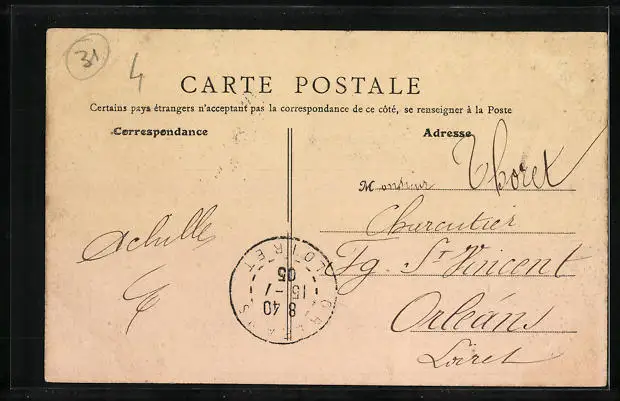 31
4
CARTE POSTALE
Certains pays étrangers n'acceptant pas la correspondance de ce côté, se renseigner à la Poste
Correspondance
Adresse
Monsieur Thoret
Charcutier
Fg. St Vincent
Orléans
Loiret
Achille
ORLEANS
8 40
15 - 1
05
LOIRET